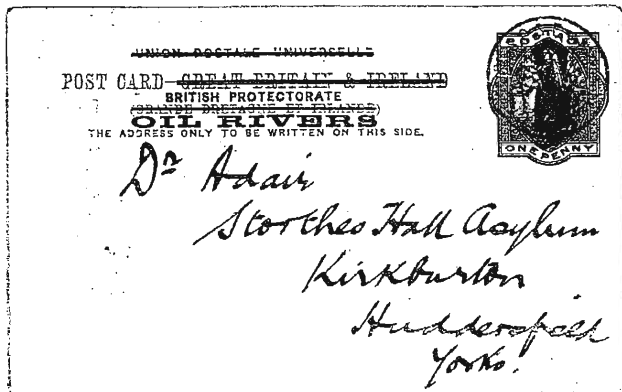 UNION POSTALE UNIVERSELLE
POST CARD GREAT BRITAIN & IRELAND
BRITISH PROTECTORATE
(GRANDE BRETAGNE ET IRLANDE)
OIL RIVERS
THE ADDRESS ONLY TO BE WRITTEN ON THIS SIDE.
POSTAGE
ONE PENNY
Dr Adair
Storthes Hall Asylum
Kirkburton
Huddersfield
Yorks.